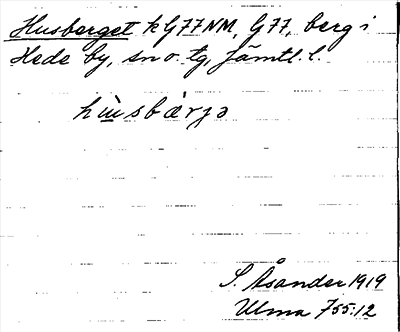 Husberget k G77NM, G77, berg i
Hede by, sn o. tg, Jämtl. l.
hùsbärjə
S. Åsander 1919
Ulma 755:12